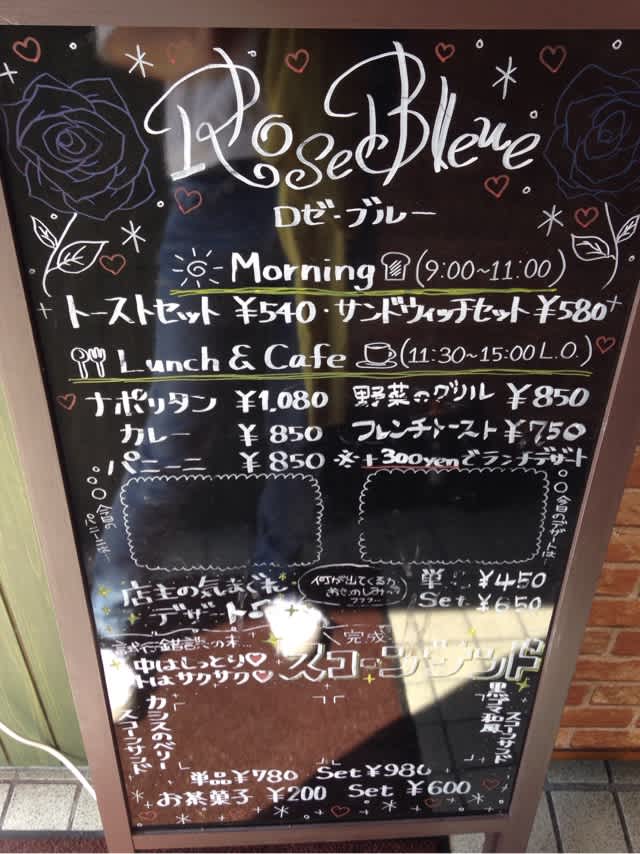 Rose Bleue
ロゼ・ブルー
Morning (9:00~11:00)
トーストセット ¥540・サンドウィッチセット ¥580
Lunch & Cafe (11:30~15:00 L.O.)
ナポリタン ¥1,080 野菜のグリル ¥850
カレー ¥850 フレンチトースト ¥750
パニーニ ¥850 ※+300yenでランチデザート
今日の
パニーニは…
今日のデザートは
店主の気まぐれ
デザート
何が出てくるか
おたのしみ
???...
単 ¥450
Set ¥650
試行錯誤の末...
完成
中はしっとり
外はサクサク
スコーンサンド
カシスのベリー
スコーンサンド
黒ゴマ和風
スコーンサンド
単品¥780 Set ¥980
お茶菓子 ¥200 Set ¥600